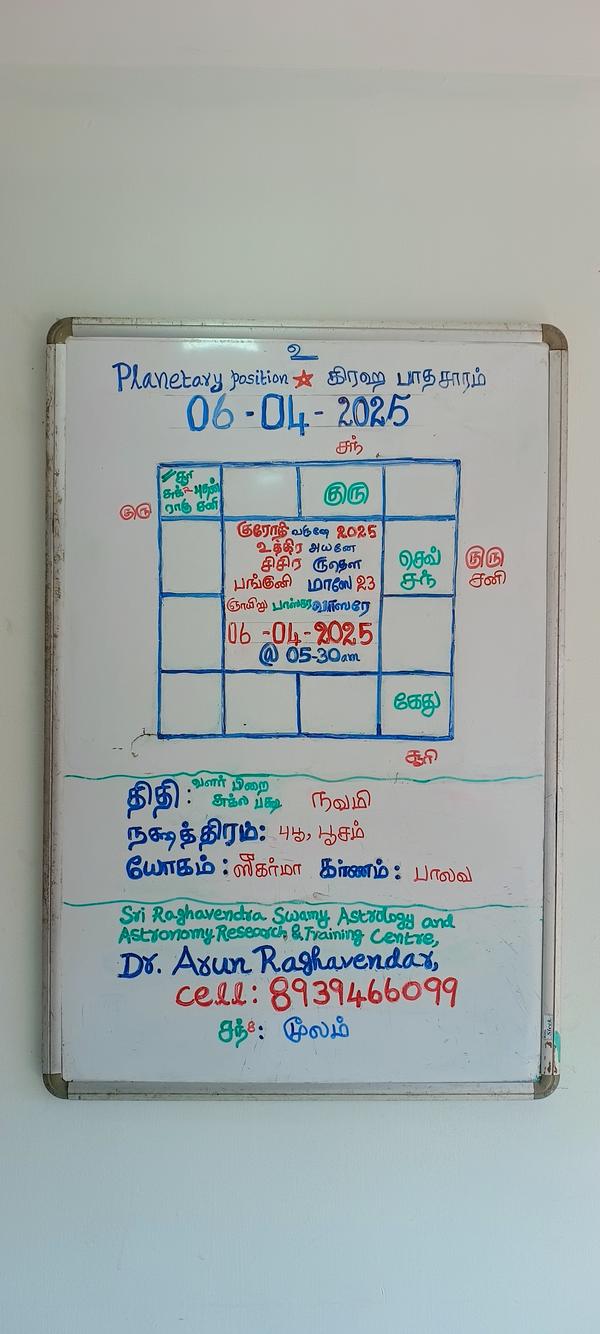 உ
Planetary position ☆ கிரஹ பாதசாரம்
06-04-2025
சந்
சூரி
சுக் புதன்
ராகு சனி
குரு
குரு
குரோதி வருஷே 2025
உத்திர அயனே
சிசிர ருதௌ
பங்குனி மாஸே 23
ஞாயிறு பாஸ்கர வாஸரே
06-04-2025
@ 05-30am
செவ்
சந்
குரு
சனி
கேது
சூரி
திதி: வளர் பிறை
சுக்ல பக்ஷ நவமி
நக்ஷத்திரம்: பூசம்
யோகம்: ஸீகர்மா கர்ணம்: பாலவ
Sri Raghavendra Swamy Astrology and
Astronomy Research & Training Centre,
Dr. Arun Raghavendar,
cell: 8939466099
சந்8: மூலம்